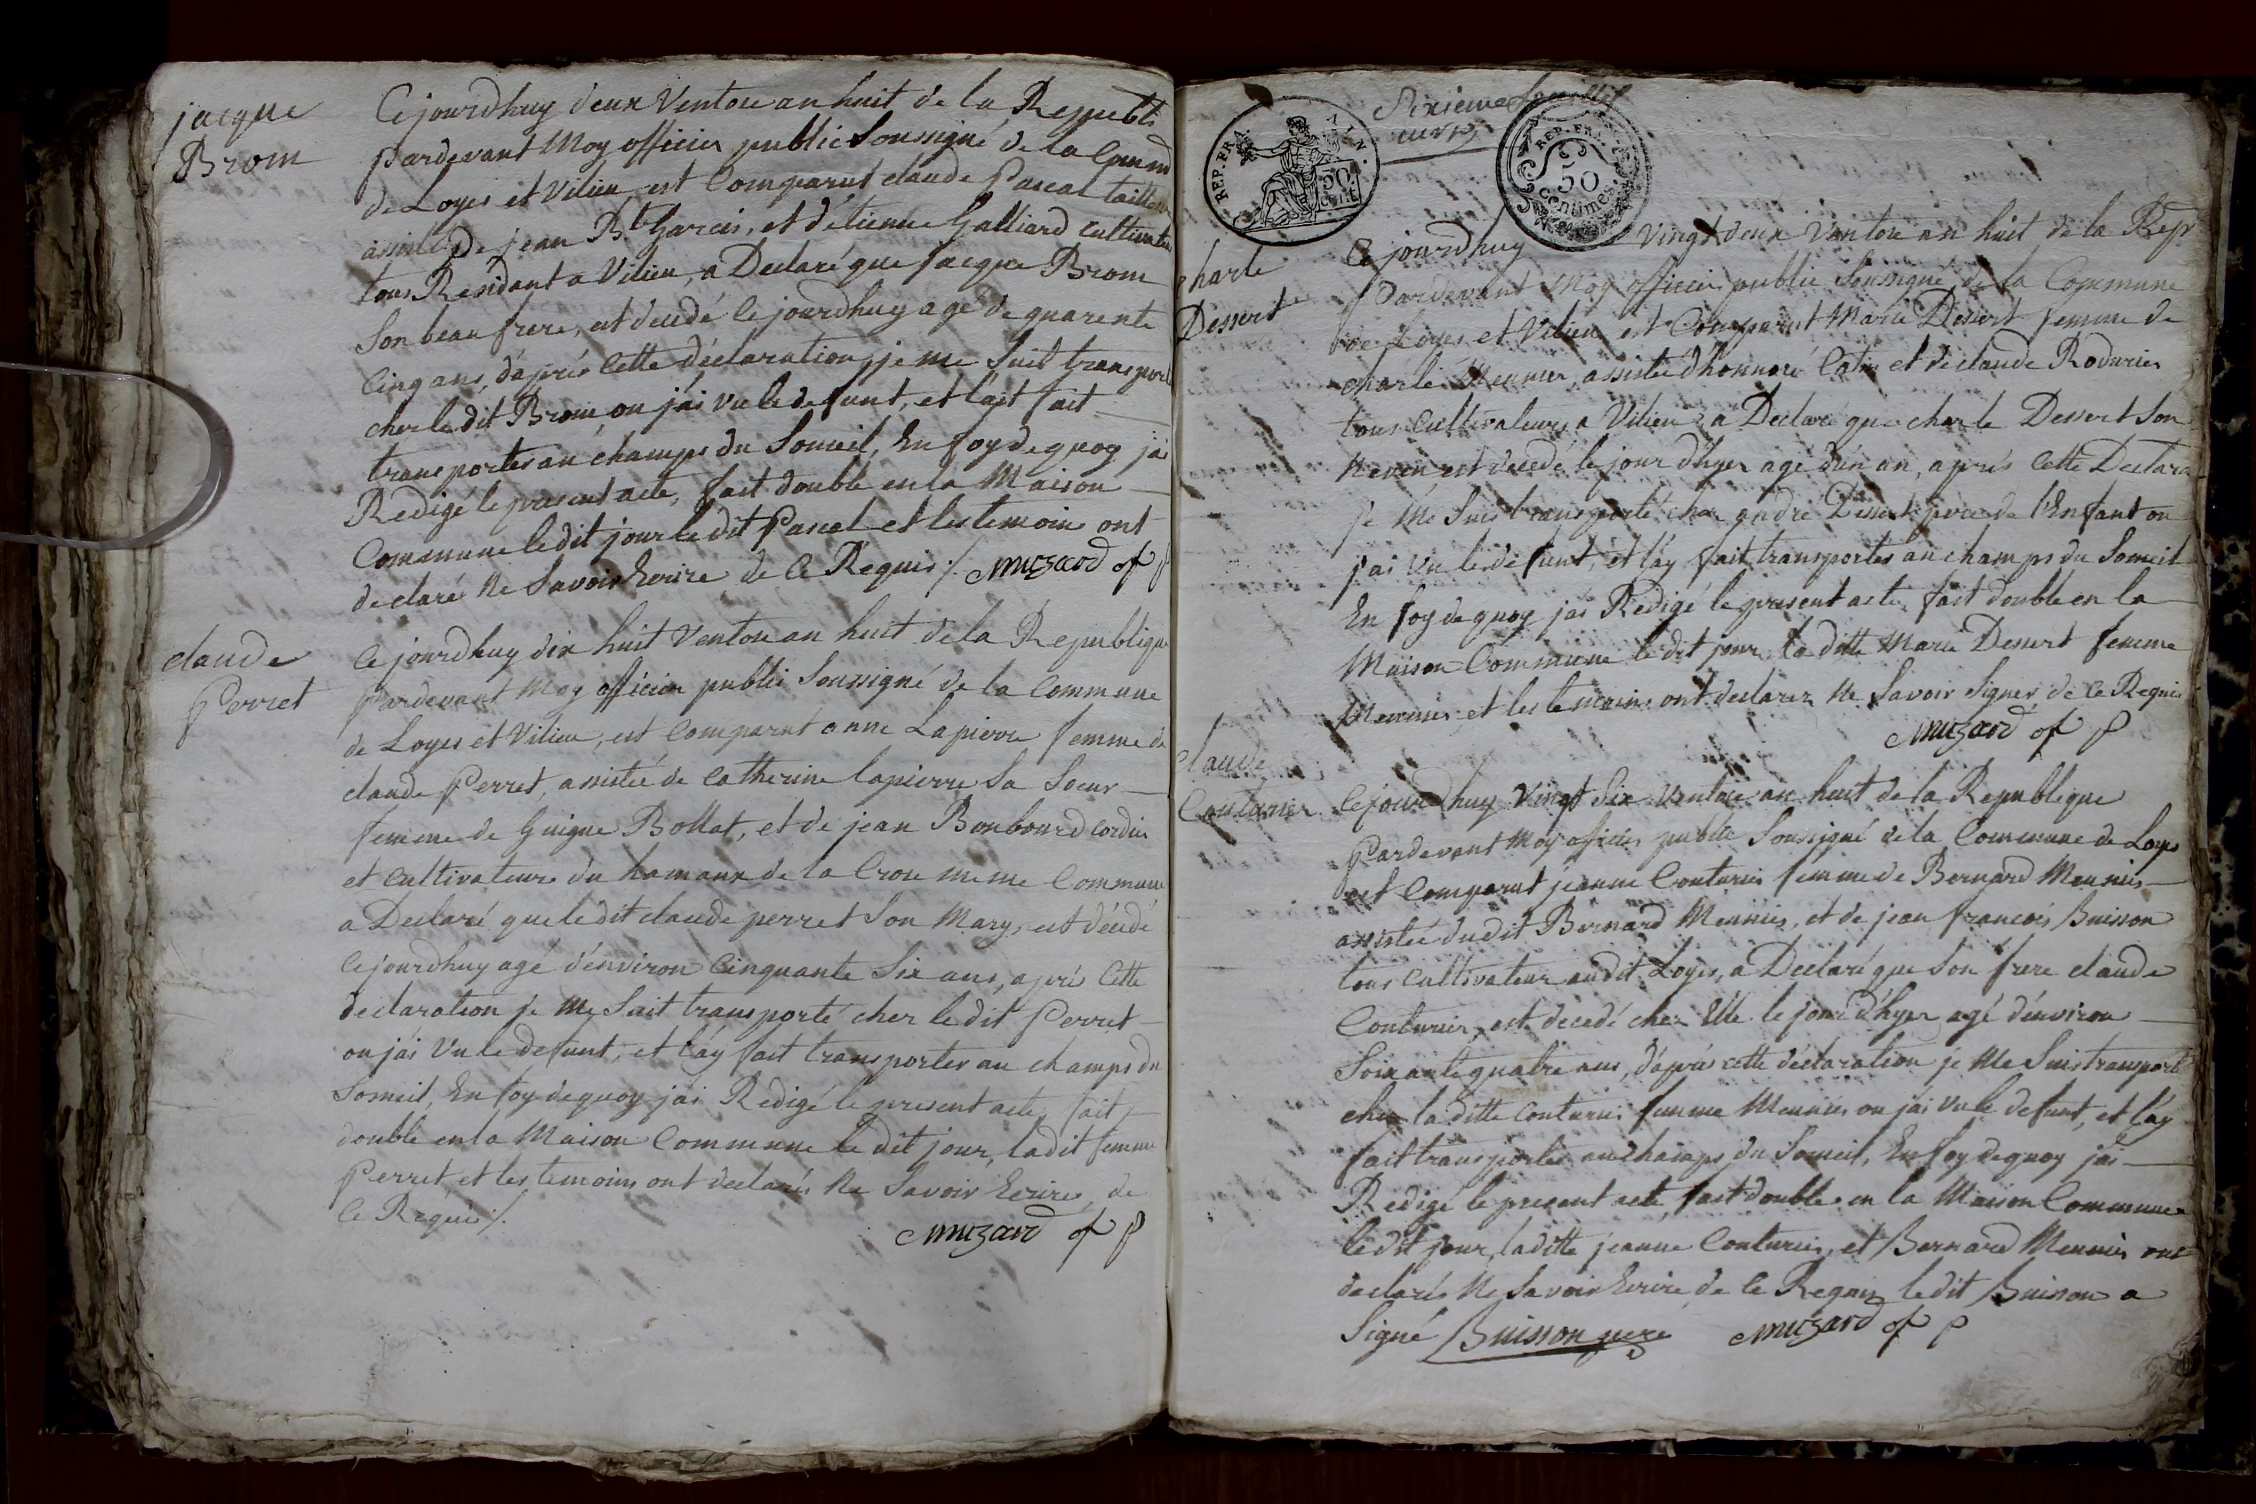 jacque
Brom
Cejourdhuy deux Ventose an huit de la Republi
pardevant Moy officier public Soussigné de la Commu
de Loyes et Vilieu est Comparut claude Pascal tailleur
assisté de jean Bt Garcis, et d'étienne Galliard cultivateur
tous Residant a Vilieu, a Declaré que jacque Brom
Son beau frere, est decedé Cejourdhuy agé de quarente
Cinq ans, d'après Cette déclaration, je me Suit transporté
cher le dit Brom, ou j'ai vu le defunt, et l'ait fait
transporter au champs du Someil, En foy de quoy jai
Redigé le present acte, fait double en la Maison
Commune le dit jour le dit Pascal et les temoins ont
declaré Ne Savoir Ecrire de Ce Requis ./. Muzard of p
claude
Perret
Cejourdhuy dix huit Ventose an huit de la Republique
Pardevant Moy officier public Soussigné de la Commune
de Loyes et Vilieu, est Comparut anne Lapierre femme de
claude Perret, assistée de Catherine lapierre Sa Soeur
femme de Guigue Bollat, et de jean Bonbourd cordier
et Cultivateurs du hamaux de la Croue meme Commune
a Declaré que le dit claude perret Son Mary, est décedé
Cejourdhuy agé d'environ Cinquante Six ans, après Cette
declaration je Me Suit transporté cher le dit Perret
ou j'ai Vu le defunt, et l'ay fait transporter au champs du
Someil, En foy de quoy j'ai Redigé le present acte, fait
double en la Maison Commune le dit jour, ladit femme
Perret, et les temoins ont declarés Ne Savoir Ecrire, de
Ce Requis ./.
Muzard of p
Sixieme feuillet
REP. FRA.
50
CENT.
REP. FRA.
50
Centimes.
charle
Dessert
Cejourdhuy Vingt deux Ventose an huit de la Repu
Pardevant Moy officier public Soussigné de la Commune
de Loyes et Vilieu est Comparut Marie Dessert femme de
charle Meunier, assistée d'honnoré Catin et de claude Rodurier
tous Cultivateurs a Vilieu, a Declaré que charle Dessert Son
Neveu, est decedé le jour d'hyer agé d'un an, après Cette Declara
je Me Suis transporté cher andré Dessert pere de l'Enfant ou
j'ai Vu le defunt, et l'ay fait transporter au champs du Someil
En foy de quoy jai Redigé le present acte, fait double en la
Maison Commune le dit jour, la ditte Marie Dessert femme
Meunier, et les temoins ont declarez Ne Savoir Signer de Ce Requis
Muzard of p
claude
Couturier
Cejourdhuy Vingt Six Ventose an huit de la Republique
Pardevant Moy officier public Soussigné de la Commune de Loyes
est Comparut jeanne Couturier femme de Bernard Meunier
assistée du dit Bernard Meunier, et de jean francois Buisson
tous Cultivateur audit Loyes, a Declaré que Son frere claude
Couturier est decedé chez Elle le jour d'hyer agé d'environ
Soixante quatre ans, d'après cette déclaration je Me Suis transporté
chez la ditte Couturier femme Meunier ou jai vu le defunt, et l'ay
fait transporter au champs du Someil, En foy de quoy jai
Redigé le present acte, fait double en la Maison Commune
le dit jour, la ditte jeanne Couturier, et Bernard Meunier ont
declarés Ne Savoir Ecrire de Ce Requis, ledit Buisson a
Signé Buisson pere Muzard of p